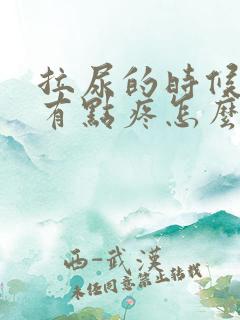 拉尿的時候
有點疼怎麼
西-武漢
未经同意禁止转载